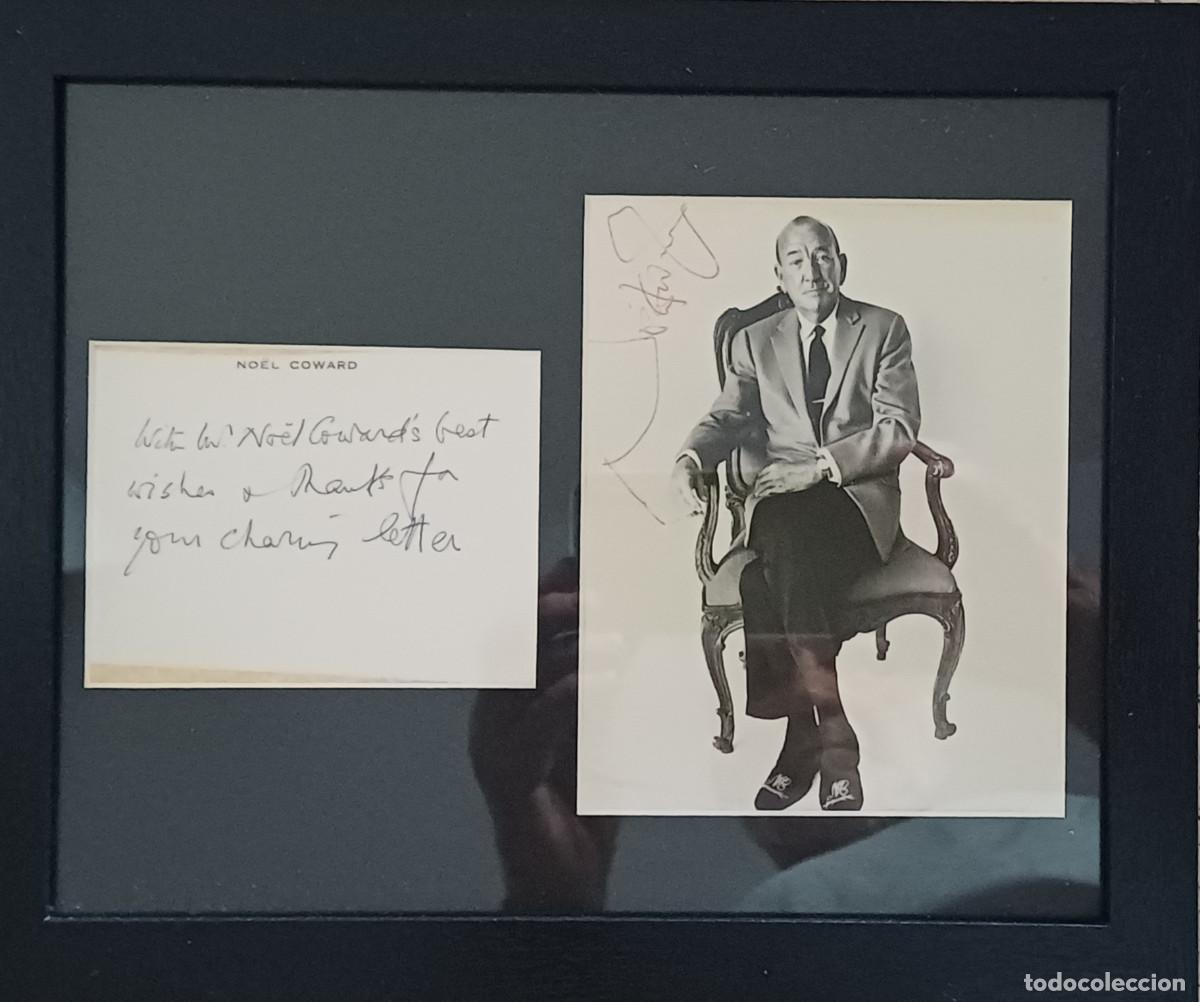 NOËL COWARD
With Mr Noël Coward's best
wishes & thanks for
your charming letter
todocoleccion